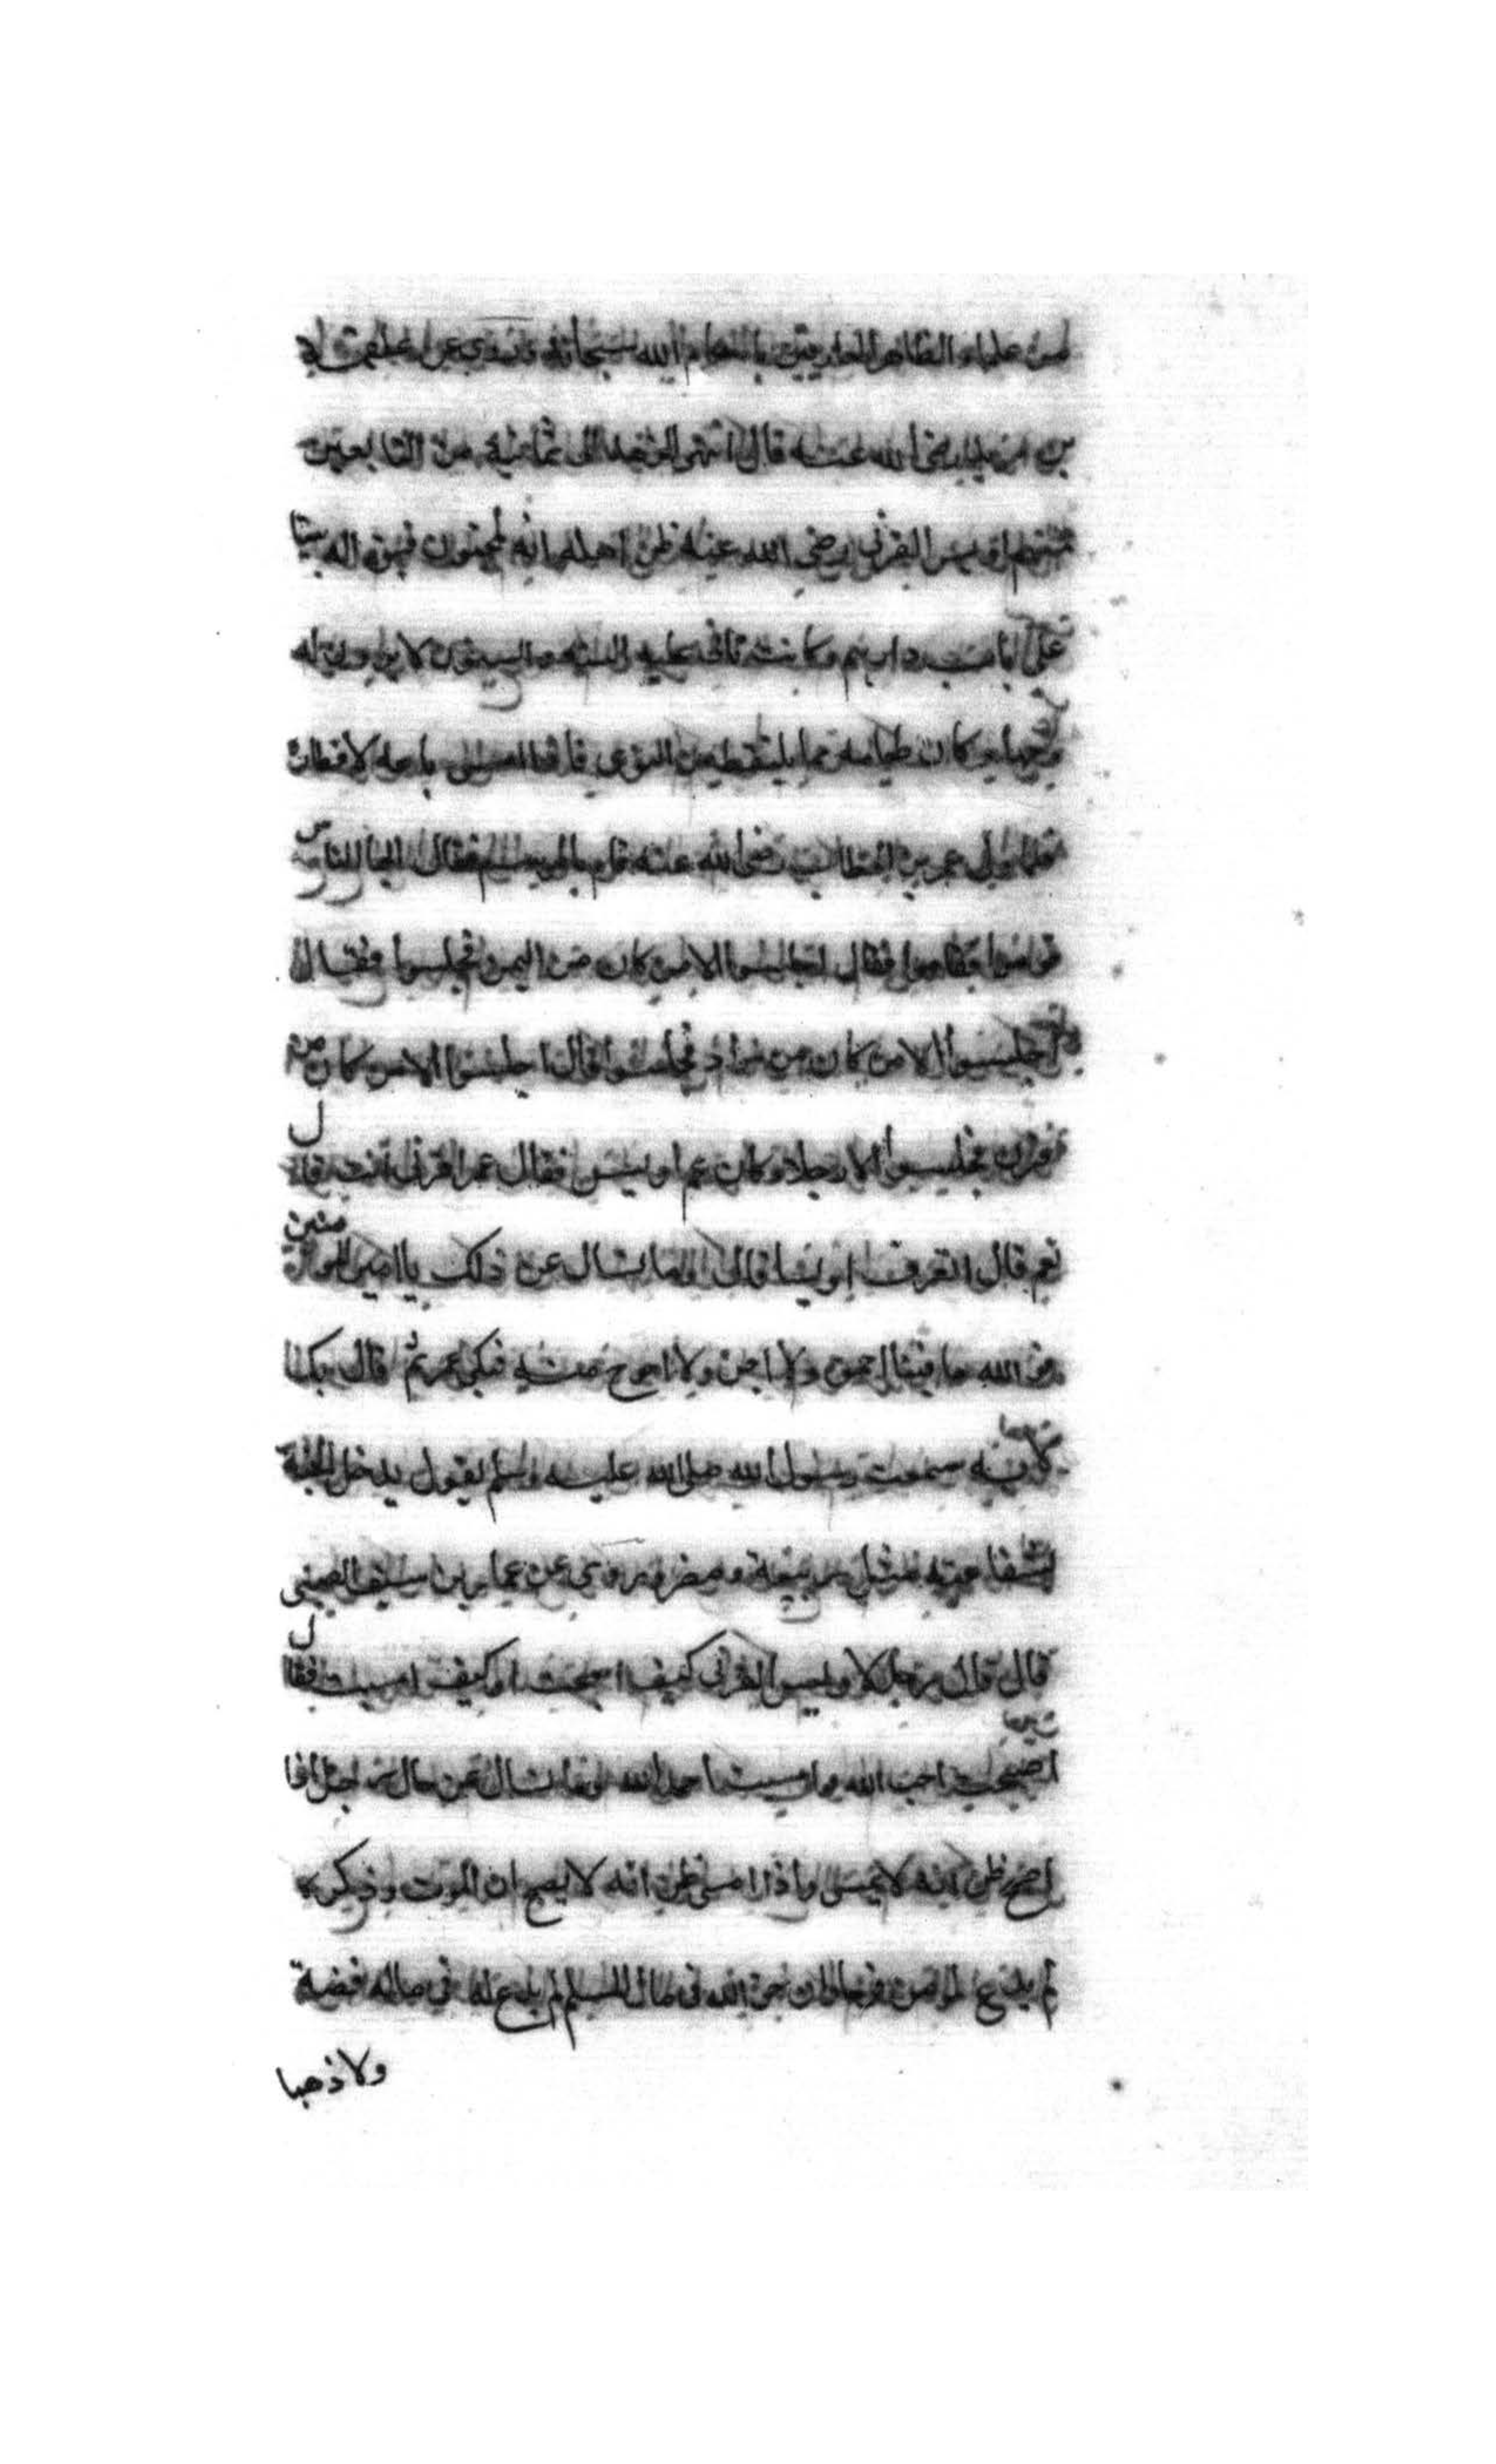 من علماء الظاهر العارفين بالله سبحانه وروي عن علقمة
بن مرثد رضي الله عنه قال انتهى الزهد الى ثمانية من التابعين
فمنهم اويس القرني رضي الله عنه ظن اهله انه مجنون فبنوا له بيتا
على باب دارهم وكانت تاتي عليه السنة والسنون لا يرون له
وجها وكان طعامه مما يلتقط من النوى فاذا امسى باعه لافطاره
فلما ولي عمر بن الخطاب رضي الله عنه قال بالموسم فقال ايها الناس
قوموا فقاموا فقال اجلسوا الا من كان من اليمن فجلسوا فقال
اجلسوا الا من كان من مراد فجلسوا قال اجلسوا الا من كان من
قرن فجلسوا الا رجلا وكان عم اويس فقال عمر اقرني انت قال
نعم قال اتعرف اويسا قال وما تسال عن ذلك يا امير المؤمنين
فو الله ما فينا احمق ولا اجن ولا احوج منه فبكى عمر ثم قال بك لا
به سمعت رسول الله صلى الله عليه وسلم يقول يدخل الجنة
بشفاعته مثل ربيعة ومضر وروي عن عمار بن سيف الضبي
قال قال رجل لاويس القرني كيف اصبحت او كيف امسيت فقال
اصبحت احب الله وامسيت احمد الله وما تسال عن حال رجل اذا
اصبح ظن انه لا يمسي واذا امسى ظن انه لا يصبح ان الموت وذكره
لم يدع لمؤمن فرحا وان حق الله في مال المسلم لم يدع له في ماله فضة
ولا ذهبا